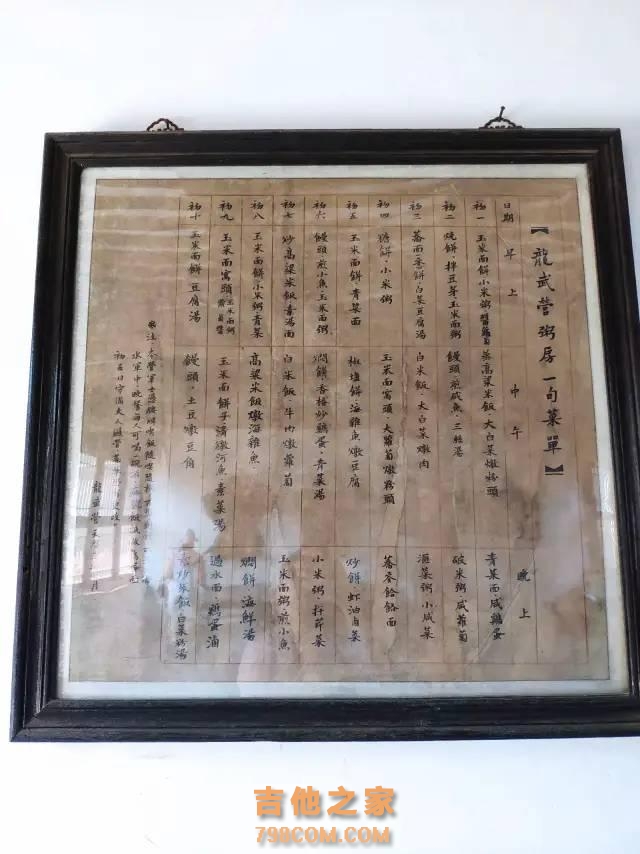 【龍武營粥房一旬菜單】
日期 早上 中午 晚上
初一 玉米面餅·小米粥 蒸高粱米飯·大白菜燉粉頭 青菜面·咸鷄蛋
初二 燒餅·拌豆芽·玉米面粥 饅頭·煎咸魚·三鮮湯 破米粥·咸蘿蔔
初三 蕎面蒸餅·白菜豆腐湯 白米飯·大白菜燉肉 滙菜粥·小咸菜
初四 糖餅·小米粥 玉米面窩頭·大蘿蔔燉粉頭 蕎麥餄餎面
初五 玉米面餅·青菜面 椒塩餅·海雜魚燉豆腐 炒餅·虾油卤菜
初六 饅頭·煎小魚·玉米面粥 燜餅·香椿炒鷄蛋·青菜湯 小米粥·拌芹菜
初七 炒高粱米飯·素湯面 白米飯·牛肉燉蘿蔔 玉米面粥·煎小魚
初八 玉米面餅·小米粥·青菜 高粱米飯·燉海雜魚 燜餅·海鮮湯
初九 玉米面窩頭·玉米面粥 玉米面餅子·清燉河魚·素菜湯 過水面·鷄蛋滷
初十 玉米面餅·豆腐湯 饅頭·土豆燉豆角 炒米飯·白菜粉湯
※注:
水軍中·晚餐每人可喝一碗
初五日守備夫人
龍武營
吉他之家
798COM.COM